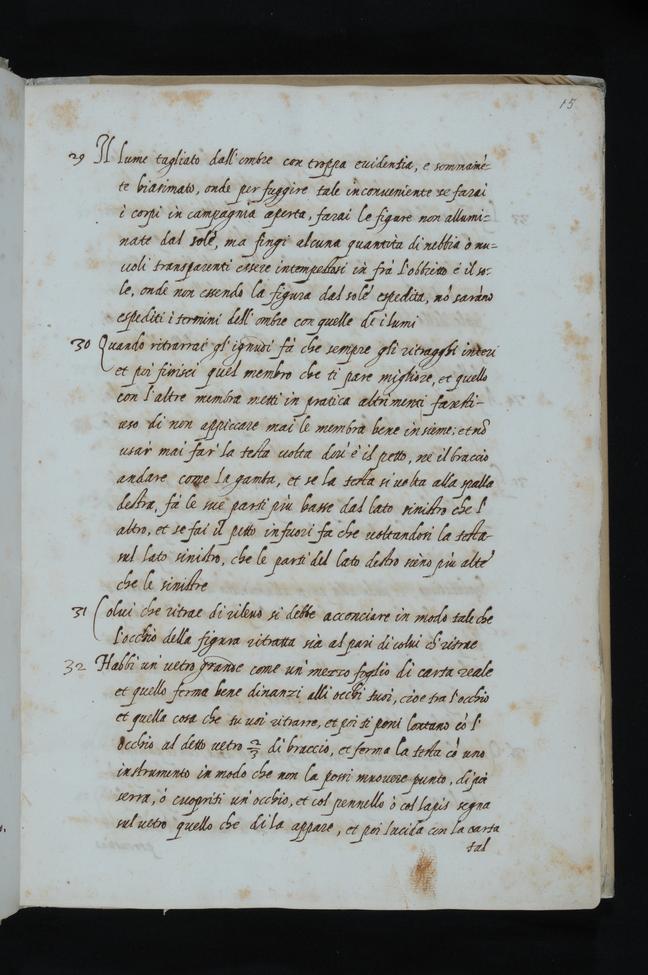 15
29 Il lume tagliato dall'ombre con troppa euidentia, e sommamē-
te biasimato, onde per fuggire tale inconueniente se farai
i corpi in campagnia aperta, farai le figure non allumi-
nate dal sole, ma fingi alcuna quantità di nebbia ò nu-
uoli transparenti essere interposti in frà l'obbietto è il so-
le, onde non essendo la figura dal sole espedita, nō sarāno
espediti i termini dell'ombre con quelle de i lumi
30 Quando ritrarrai gl'ignudi fà che sempre gli ritragghi interi
et poi finisci quel membro che ti pare migliore, et quello
con l'altre membra metti in pratica altrimenti faresti-
uso di non appiccare mai le membra bene insieme: et nō
usar mai far la testa uolta dou'è il petto, ne il braccio
andare come la gamba, et se la testa si uolta alla spalla
destra, fà le sue parti più basse dal lato sinistro che l'
altro, et se fai il petto infuori fa che uoltandosi la testa
sul lato sinistro, che le parti del lato destro sieno più alte
che le sinistre
31 Colui che ritrae di rileuo si debbe acconciare in modo tale che
l'occhio della figura ritratta sia al pari di colui ch ritrae
32 Habbi un uetro grande come un mezzo foglio di carta reale
et quello ferma bene dinanzi alli occhi tuoi, cioe tra l'occhio
et quella cosa che tu uoi ritrarre, et poi ti poni lontano cō l'
occhio al detto uetro 2/3 di braccio, et ferma la testa cō uno
instrumento in modo che non la possi muouere punto, di poi
serra, ó cuopriti un'occhio, et col pennello ò col lapis segna
sul uetro quello che di la appare, et poi lucida con la carta
tal